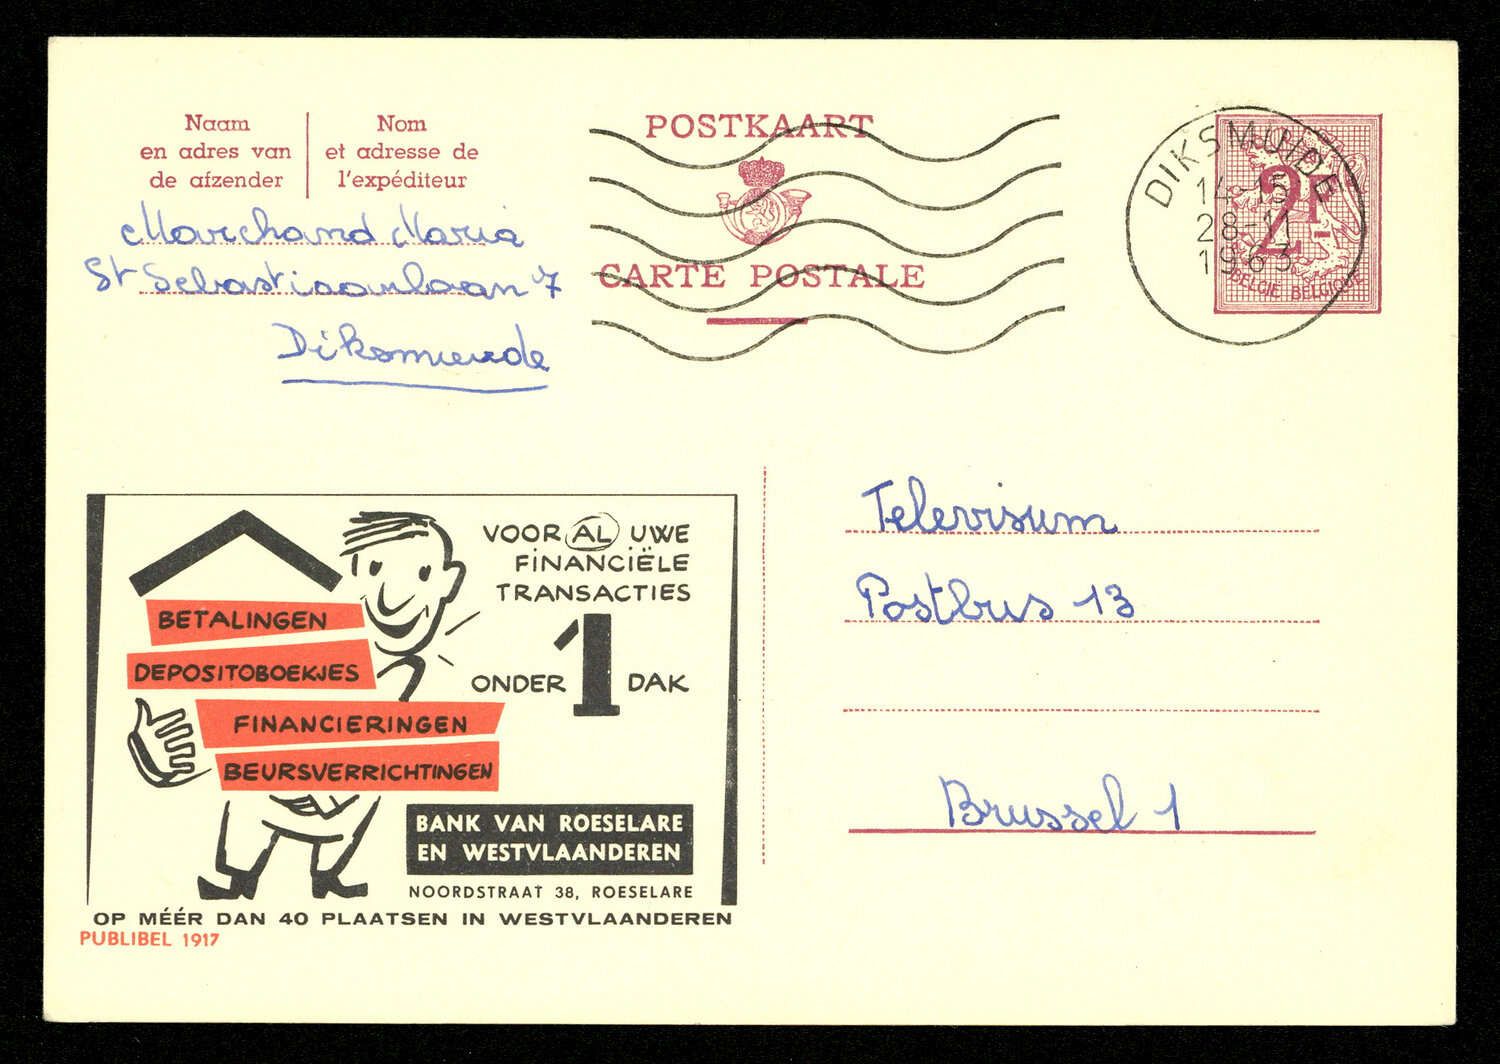 Naam
en adres van
de afzender
Nom
et adresse de
l'expéditeur
Marchand Maria
St Sebastiaanlaan 7
Diksmuide
POSTKAART
CARTE POSTALE
DIKSMUIDE
14-15
28-11
1963
2F
BELGIË BELGIQUE
VOOR AL UWE
FINANCIËLE
TRANSACTIES
ONDER 1 DAK
BETALINGEN
DEPOSITOBOEKJES
FINANCIERINGEN
BEURSVERRICHTINGEN
BANK VAN ROESELARE
EN WESTVLAANDEREN
NOORDSTRAAT 38, ROESELARE
OP MÉÉR DAN 40 PLAATSEN IN WESTVLAANDEREN
PUBLIBEL 1917
Televisum
Postbus 13
Brussel 1